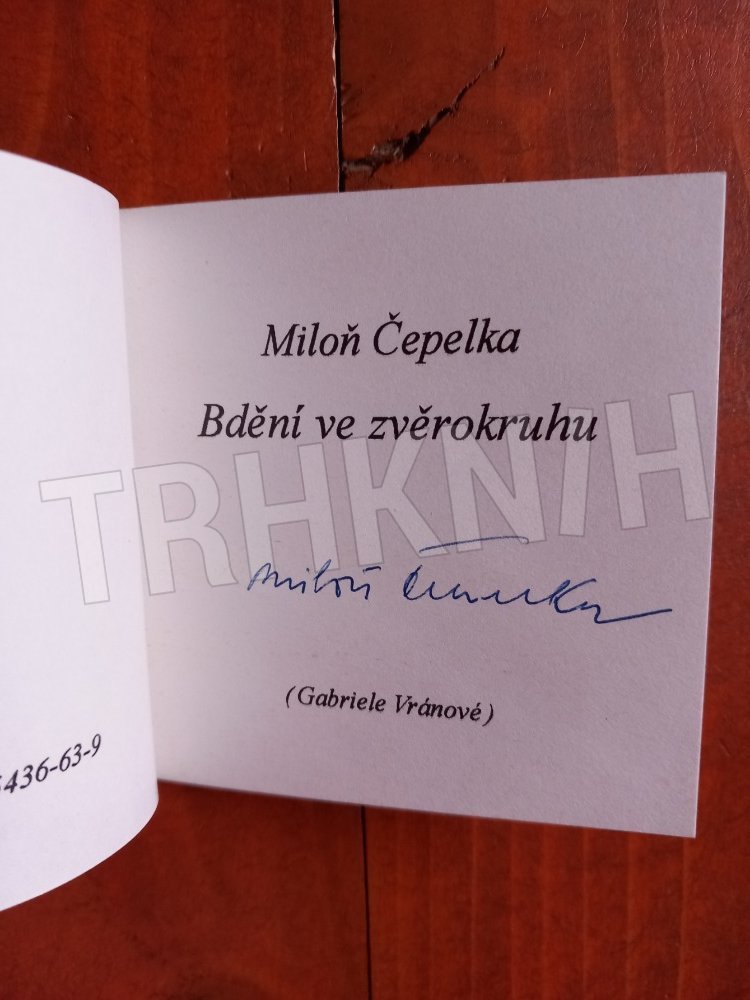 Miloň Čepelka
Bdění ve zvěrokruhu
TRHKNIH
Miloň Čepelka
(Gabriele Vránové)
436-63-9